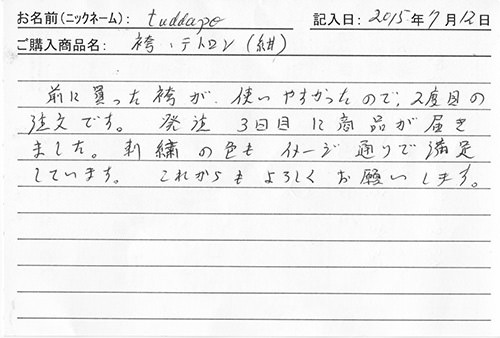 お名前(ニックネーム): tuddapo 記入日: 2015年7月12日
ご購入商品名: 袴・テトロン(紺)
前に買った袴が、使いやすかったので、2度目の
注文です。 発注 3日目に商品が届き
ました。刺繍の色も イメージ通りで満足
しています。 これからも よろしく お願いします。